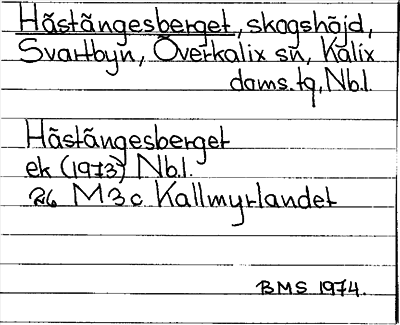 Hästängesberget, skogshöjd,
Svartbyn, Överkalix sn, Kalix
doms.tg, Nbl.
Hästängesberget
ek (1973) Nbl.
26 M 3 c Kallmyrlandet
BMS 1974.